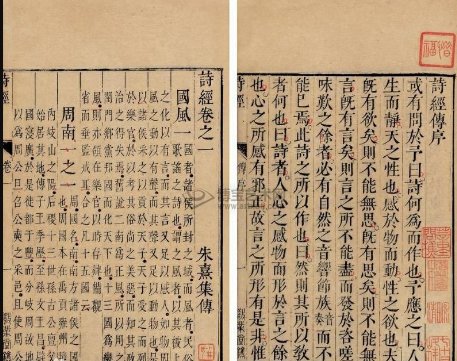 詩經傳序
或有問於予曰詩何為而作也予應之曰人
生而靜天之性也感於物而動性之欲也夫
既有欲矣則不能無思既有思矣則不能無
言既有言矣則言之所不能盡而發於咨嗟
咏歎之餘者必有自然之音響節族音奏而不
能已焉此詩之所以作也曰然則其所以教
者何也曰詩者人心之感物而形於言之餘
也心之所感有邪正故言之所形有是非惟
詩經
傳序
詩經卷之一
朱熹集傳
國風一
國者諸侯所封之域而風者民俗
歌謠之詩也謂之風者以其被上
之化以有言而其言又足以感人如物因
風之動以有聲而其聲又足以動物也是
以諸侯采之以貢於天子天子受之而列
於樂官於以考其俗尚之美惡而知其政
治之得失焉舊說二南為正風所以用之
閨門鄉黨邦國而化天下也十三國為變
風則亦領在樂官以時存肄備觀
省而垂監戒耳合之凡十五國云
周南一之一
周國名南南方諸侯之國
也周國本在禹貢雍州境
內岐山之陽后稷十三世孫古公亶父
始居其地傳子王季歷至孫文王昌辟
國寖廣於是徙都于豐而分岐周故地
以為周公旦召公奭之采邑且使周公
詩經
卷一